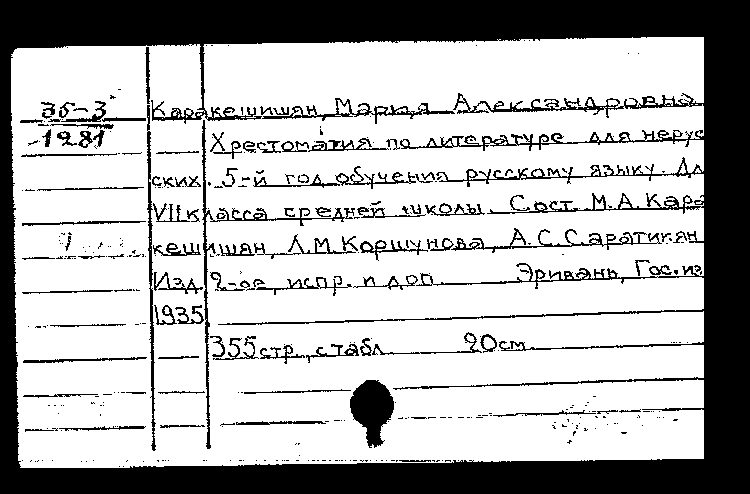 35-3
1281
Каракешишян, Мария Александровна
Хрестоматия по литературе для нерус
ских. 5-й год обучения русскому языку. Дл
VII класса средней школы. Сост. М.А. Кара
кешишян, Л.М. Коршунова, А.С. Саратикян
Изд. 2-ое, испр. и доп. Эривань, Гос. из
1935
355 стр., с табл. 20 см.